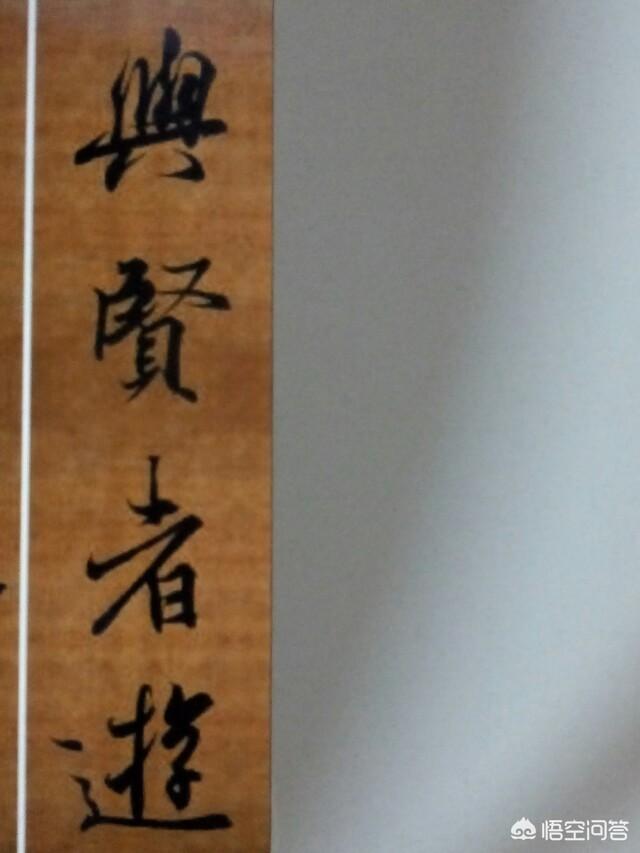 與賢者遊
悟空问答